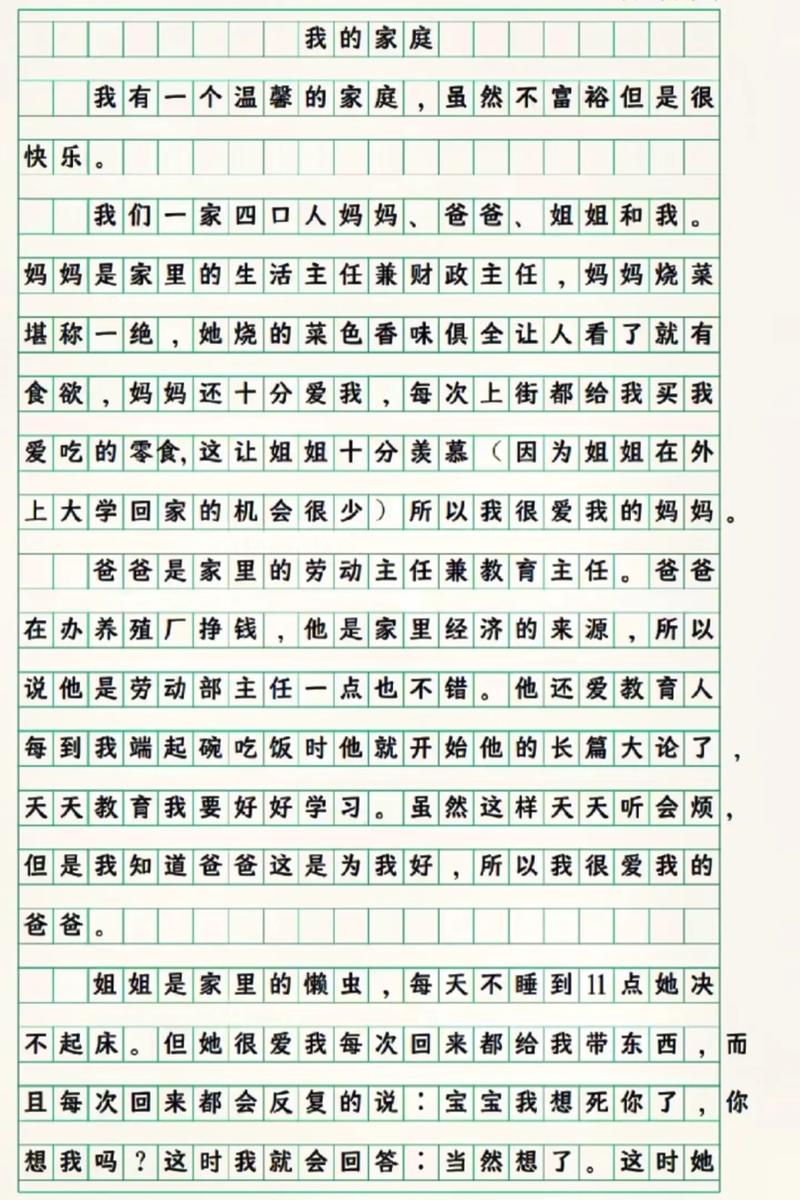 我的家庭
我有一个温馨的家庭，虽然不富裕但是很
快乐。
我们一家四口人妈妈、爸爸、姐姐和我。
妈妈是家里的生活主任兼财政主任，妈妈烧菜
堪称一绝，她烧的菜色香味俱全让人看了就有
食欲，妈妈还十分爱我，每次上街都给我买我
爱吃的零食,这让姐姐十分羡慕（因为姐姐在外
上大学回家的机会很少）所以我很爱我的妈妈。
爸爸是家里的劳动主任兼教育主任。爸爸
在办养殖厂挣钱，他是家里经济的来源，所以
说他是劳动部主任一点也不错。他还爱教育人
每到我端起碗吃饭时他就开始他的长篇大论了，
天天教育我要好好学习。虽然这样天天听会烦，
但是我知道爸爸这是为我好，所以我很爱我的
爸爸。
姐姐是家里的懒虫，每天不睡到11点她决
不起床。但她很爱我每次回来都给我带东西，而
且每次回来都会反复的说：宝宝我想死你了，你
想我吗？这时我就会回答：当然想了。这时她